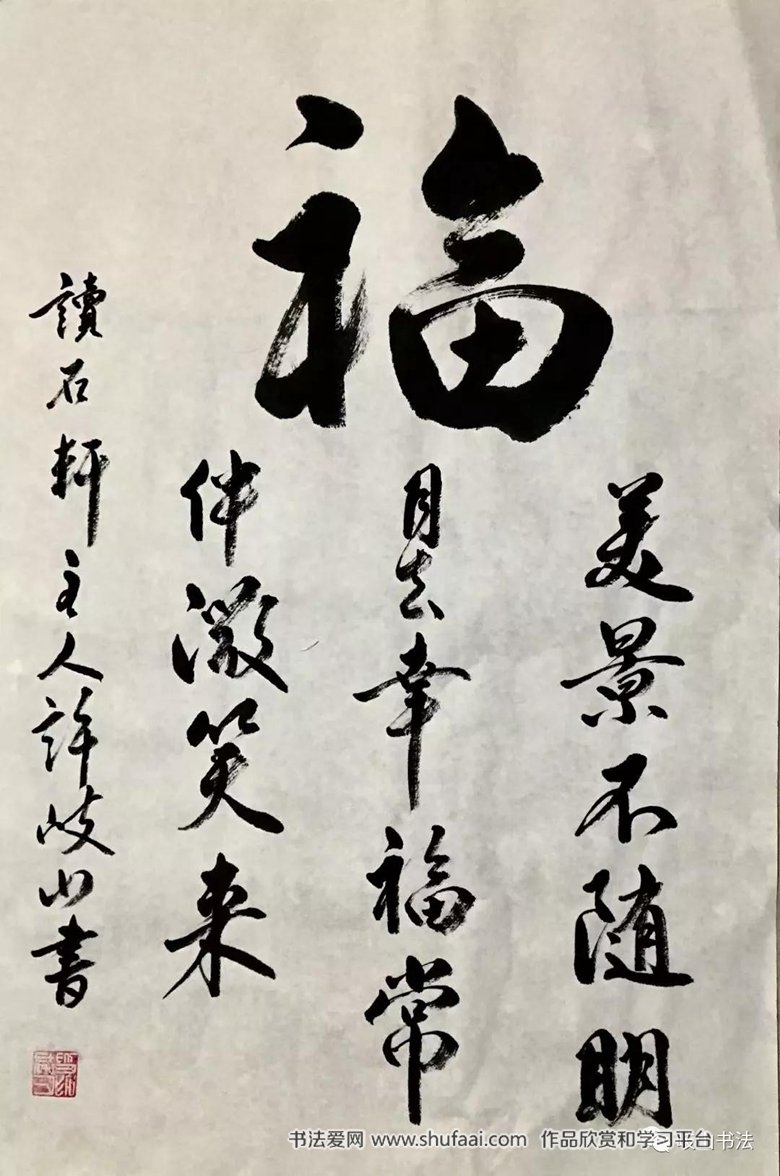 福
美景不随明
月去幸福常
伴微笑来
讀石軒主人許岐山書
书法爱网 www.shufaai.com 作品欣赏和学习平台
书法